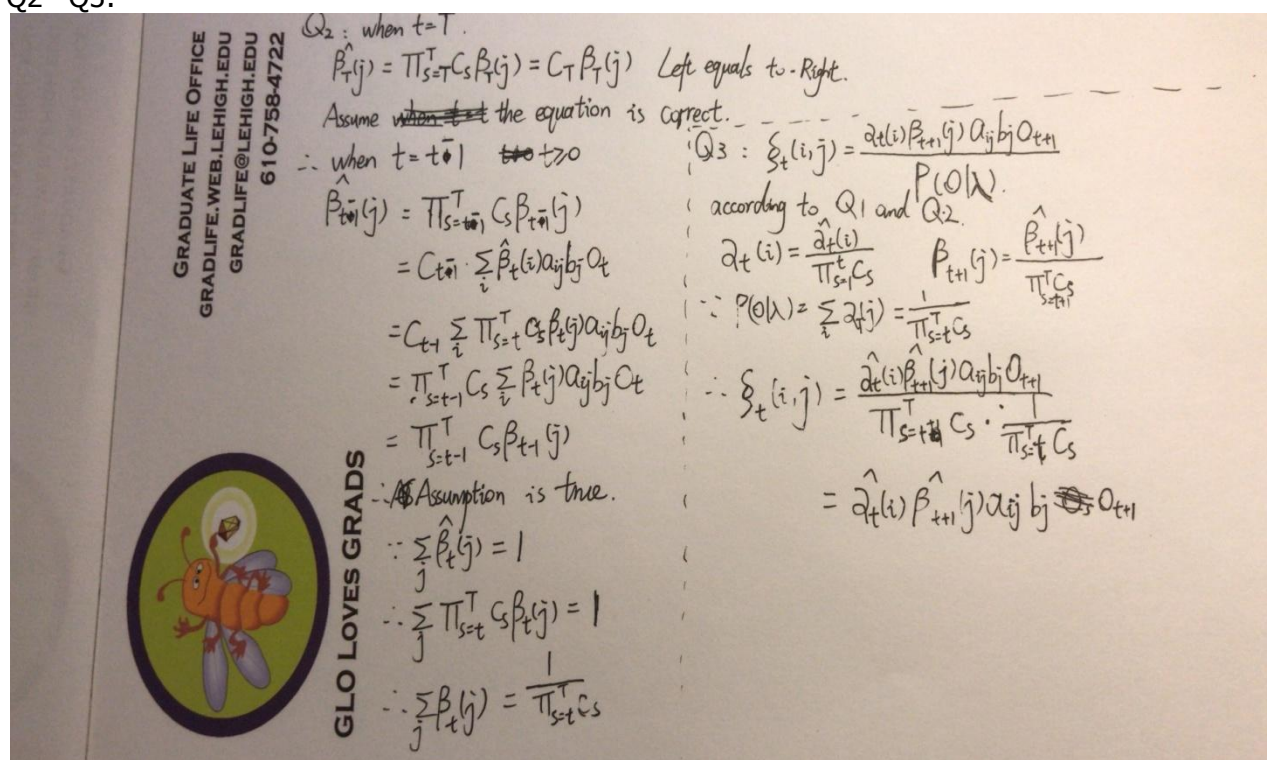 Q2 Q3:
GRADUATE LIFE OFFICE
GRADLIFE.WEB.LEHIGH.EDU
GRADLIFE@LEHIGH.EDU
610-758-4722
GLO LOVES GRADS
Q2 : when t=T.
β̂_T(j) = Π_{s=T}^T C_s β_T(j) = C_T β_T(j) Left equals to Right.
Assume the equation is correct.
∴ when t = t-1 t>0
β̂_{t-1}(j) = Π_{s=t-1}^T C_s β_{t-1}(j)
= C_{t-1} · Σ_i β̂_t(i) a_ij b_j O_t
= C_{t-1} Σ_i Π_{s=t}^T C_s β_t(j) a_ij b_j O_t
= Π_{s=t-1}^T C_s Σ_i β_t(j) a_ij b_j O_t
= Π_{s=t-1}^T C_s β_{t-1}(j)
∴ Assumption is true.
∵ Σ_j β̂_t(j) = 1
∴ Σ_j Π_{s=t}^T C_s β_t(j) = 1
∴ Σ_j β_t(j) = 1 / Π_{s=t}^T C_s
Q3 : ξ_t(i,j) = ∂_t(i) β_{t+1}(j) a_ij b_j O_{t+1} / P(O|λ).
according to Q1 and Q2.
∂_t(i) = ∂̂_t(i) / Π_{s=1}^t C_s β_{t+1}(j) = β̂_{t+1}(j) / Π_{s=t+1}^T C_s
∵ P(O|λ) = Σ_i ∂_T(j) = 1 / Π_{s=t}^T C_s
∴ ξ_t(i,j) = ∂̂_t(i) β̂_{t+1}(j) a_ij b_j O_{t+1} / Π_{s=t}^T C_s · 1 / Π_{s=t}^T C_s
= ∂̂_t(i) β̂_{t+1}(j) a_ij b_j O_{t+1}